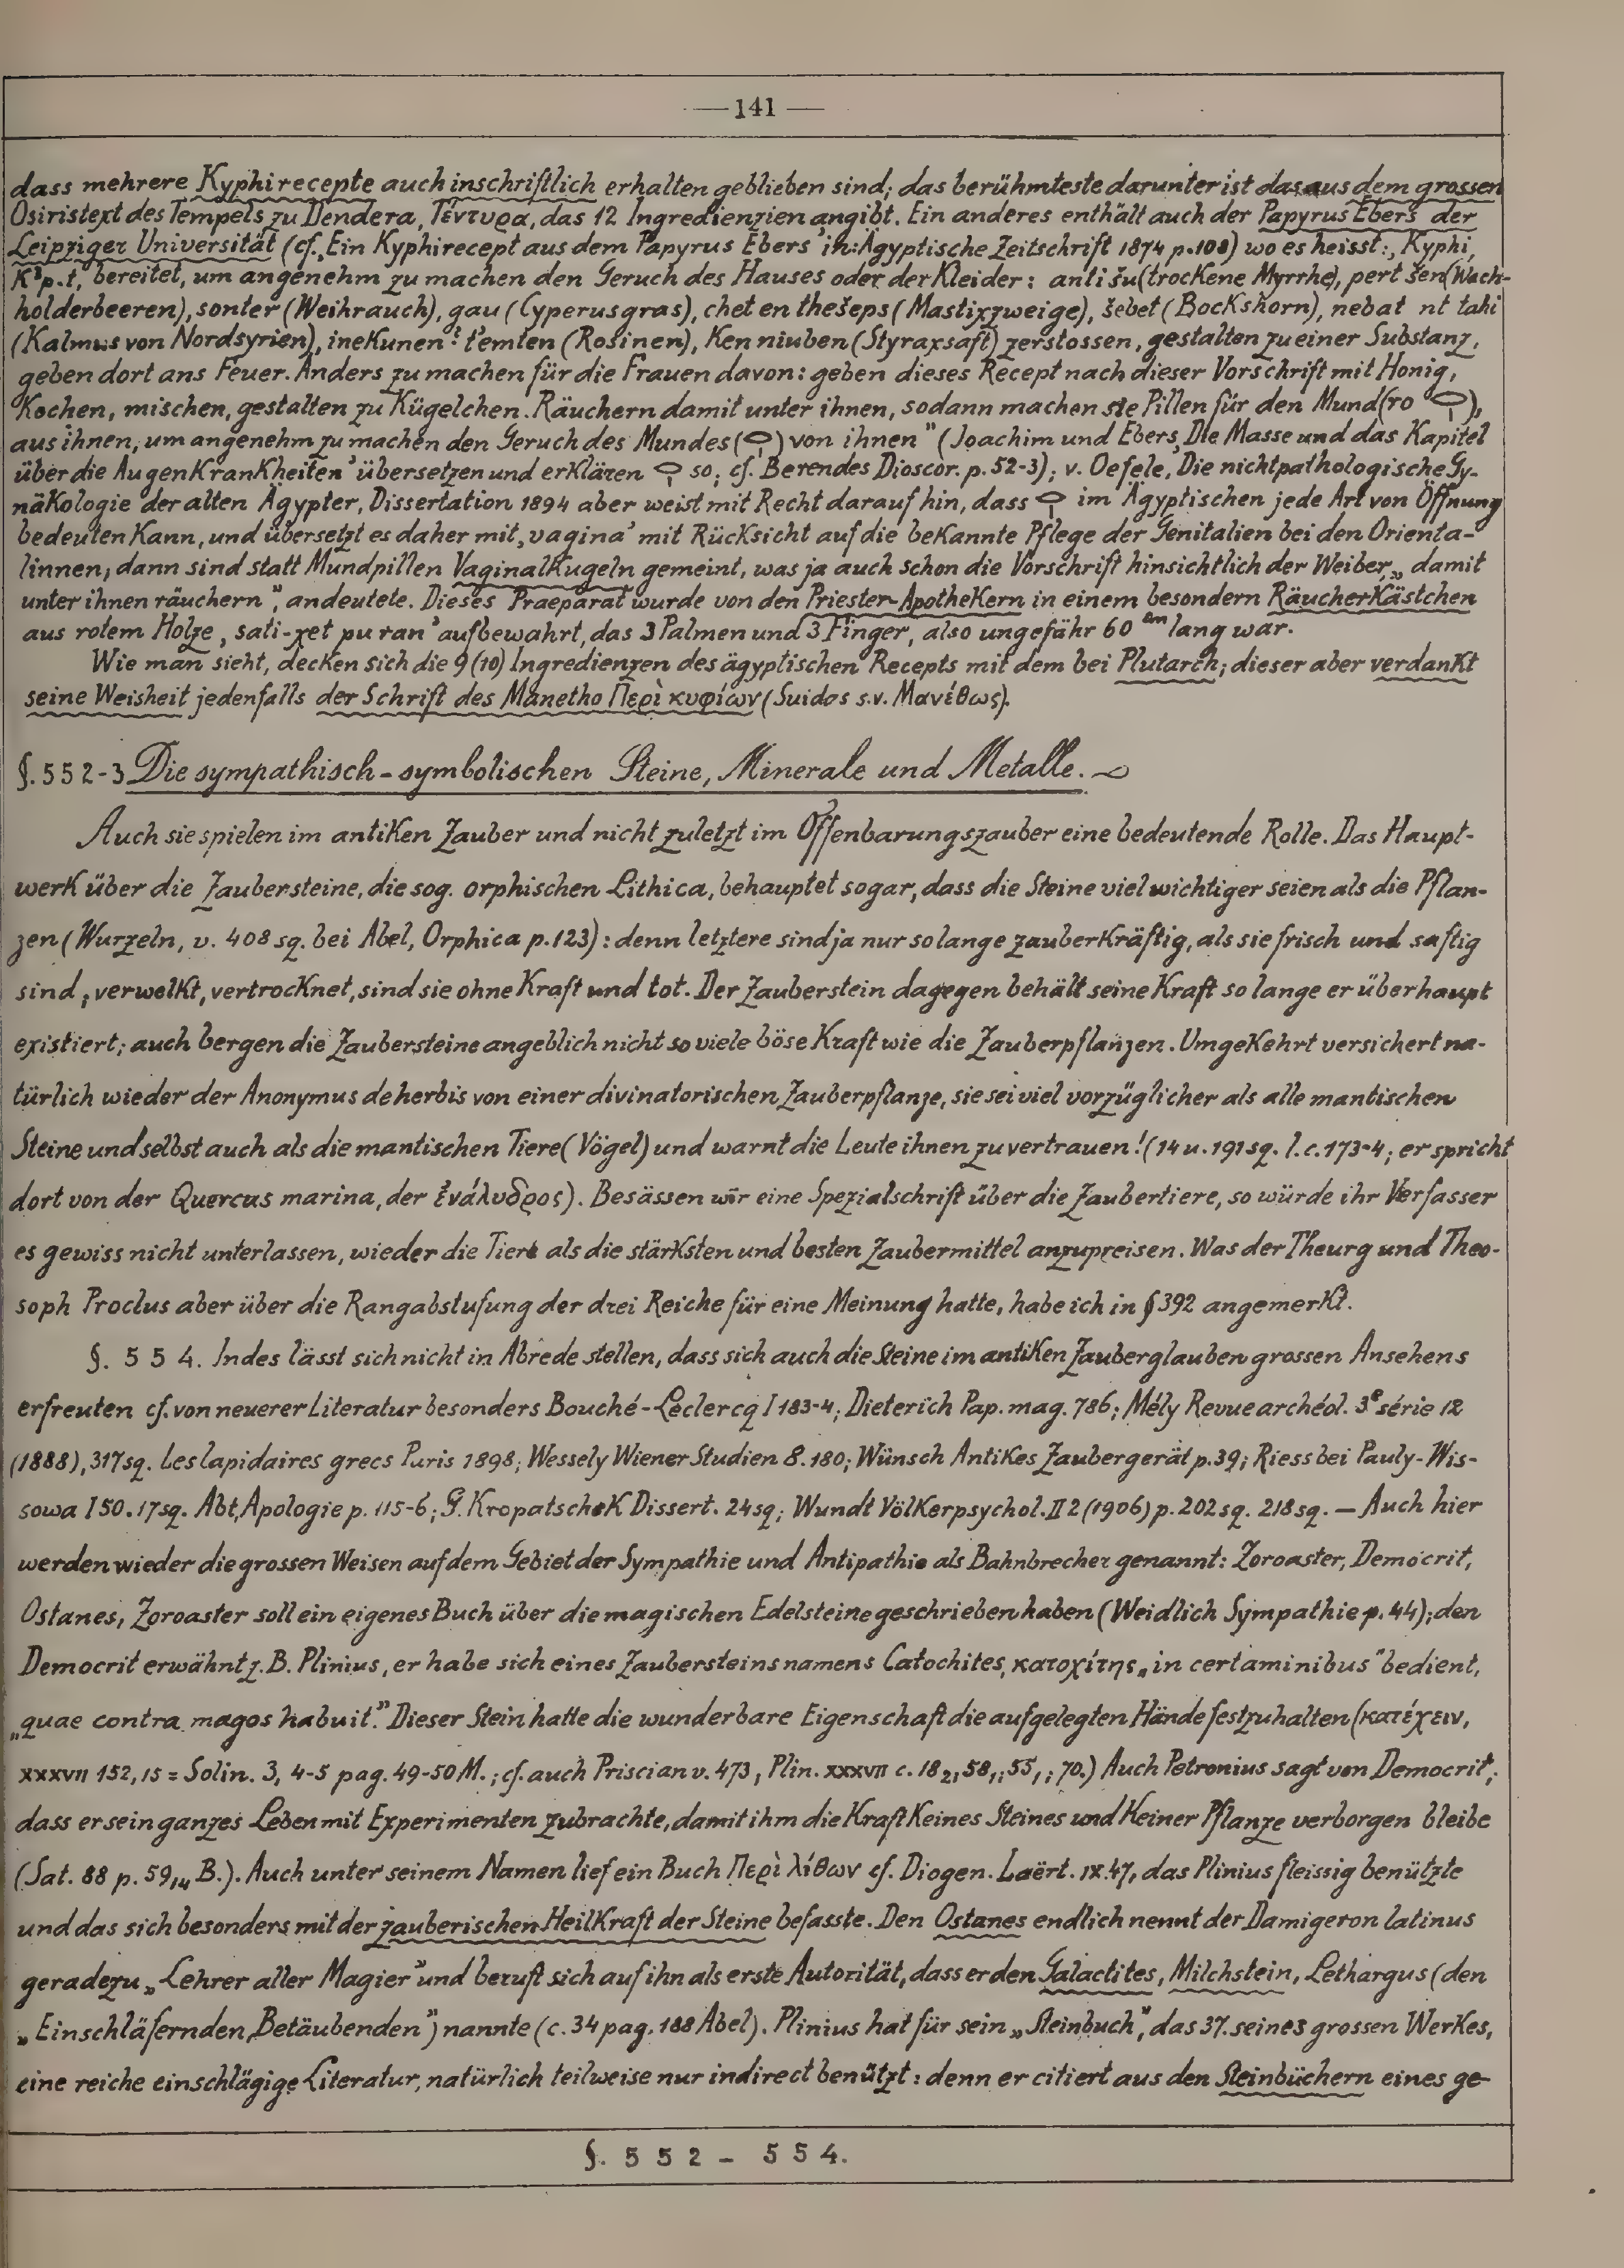 — 141 —
dass mehrere Kyphirecepte auch inschriftlich erhalten geblieben sind; das berühmteste darunter ist das aus dem grossen
Osiristext des Tempels zu Dendera, Τέντυρα, das 12 Ingredienzien angibt. Ein anderes enthält auch der Papyrus Ebers der
Leipziger Universität (cf. ‚Ein Kyphirecept aus dem Papyrus Ebers' in: Ägyptische Zeitschrift 1874 p. 108) wo es heisst: „Kyphi,
bereitet, um angenehm zu machen den Geruch des Hauses oder der Kleider: anti šu (trockene Myrrhe), pert šen (Wach-
holderbeeren), sonter (Weihrauch), gau (Cyperusgras), chet en thešeps (Mastixzweige), šebet (Bockshorn), nebat nt tahi
(Kalmus von Nordsyrien), inekunen ? t'emten (Rosinen), Ken niuben (Styraxsaft) zerstossen, gestalten zu einer Substanz,
geben dort ans Feuer. Anders zu machen für die Frauen davon: geben dieses Recept nach dieser Vorschrift mit Honig,
Kochen, mischen, gestalten zu Kügelchen. Räuchern damit unter ihnen, sodann machen sie Pillen für den Mund (ro),
aus ihnen, um angenehm zu machen den Geruch des Mundes () von ihnen" (Joachim und Ebers ‚Die Masse und das Kapitel
über die Augenkrankheiten' übersetzen und erklären so; cf. Berendes Dioscor. p. 52-3); v. Oefele, ‚Die nichtpathologische Gy-
näkologie der alten Ägypter, Dissertation 1894 aber weist mit Recht darauf hin, dass im Ägyptischen jede Art von Öffnung
bedeuten kann, und übersetzt es daher mit ‚vagina' mit Rücksicht auf die bekannte Pflege der Genitalien bei den Orienta-
linnen; dann sind statt Mundpillen Vaginalkugeln gemeint, was ja auch schon die Vorschrift hinsichtlich der Weiber „damit
unter ihnen räuchern", andeutete. Dieses Praeparat wurde von den Priester-Apothekern in einem besondern Räucherkästchen
aus rotem Holze, sati-xet pu ran' aufbewahrt, das 3 Palmen und 3 Finger, also ungefähr 60 cm lang war.
Wie man sieht, decken sich die 9 (10) Ingredienzen des ägyptischen Recepts mit dem bei Plutarch; dieser aber verdankt
seine Weisheit jedenfalls der Schrift des Manetho Περὶ κυφίων (Suidas s.v. Μανέθως).
§. 552-3 Die sympathisch-symbolischen Steine, Minerale und Metalle.
Auch sie spielen im antiken Zauber und nicht zuletzt im Offenbarungszauber eine bedeutende Rolle. Das Haupt-
werk über die Zaubersteine, die sog. orphischen Lithica, behauptet sogar, dass die Steine viel wichtiger seien als die Pflan-
zen (Wurzeln, v. 408 sq. bei Abel, Orphica p. 123): denn letztere sind ja nur solange zauberkräftig, als sie frisch und saftig
sind; verwelkt, vertrocknet, sind sie ohne Kraft und tot. Der Zauberstein dagegen behält seine Kraft so lange er überhaupt
existiert; auch bergen die Zaubersteine angeblich nicht so viele böse Kraft wie die Zauberpflanzen. Umgekehrt versichert na-
türlich wieder der Anonymus de herbis von einer divinatorischen Zauberpflanze, sie sei viel vorzüglicher als alle mantischen
Steine und selbst auch als die mantischen Tiere (Vögel) und warnt die Leute ihnen zu vertrauen! (14 u. 191 sq. l. c. 173-4; er spricht
dort von der Quercus marina, der ἐνάλυδρος). Besässen wir eine Spezialschrift über die Zaubertiere, so würde ihr Verfasser
es gewiss nicht unterlassen, wieder die Tiere als die stärksten und besten Zaubermittel anzupreisen. Was der Theurg und Theo-
soph Proclus aber über die Rangabstufung der drei Reiche für eine Meinung hatte, habe ich in § 392 angemerkt.
§. 554. Indes lässt sich nicht in Abrede stellen, dass sich auch die Steine im antiken Zauberglauben grossen Ansehens
erfreuten cf. von neuerer Literatur besonders Bouché-Leclercq I 183-4; Dieterich Pap. mag. 786; Mély Revue archéol. 3e série 12
(1888), 317 sq. Les lapidaires grecs Paris 1898; Wessely Wiener Studien 8. 180; Wünsch Antikes Zaubergerät p. 39; Riess bei Pauly-Wis-
sowa I 50. 17 sq. Abt, Apologie p. 115-6; G. Kropatschek Dissert. 24 sq; Wundt Völkerpsychol. II 2 (1906) p. 202 sq. 218 sq. — Auch hier
werden wieder die grossen Weisen auf dem Gebiet der Sympathie und Antipathie als Bahnbrecher genannt: Zoroaster, Democrit,
Ostanes, Zoroaster soll ein eigenes Buch über die magischen Edelsteine geschrieben haben (Weidlich Sympathie p. 44); den
Democrit erwähnt z. B. Plinius, er habe sich eines Zaubersteins namens Catochites, κατοχίτης „in certaminibus" bedient,
„quae contra magos habuit." Dieser Stein hatte die wunderbare Eigenschaft die aufgelegten Hände festzuhalten (κατέχειν,
XXXVII 152, 15 = Solin. 3, 4-5 pag. 49-50 M.; cf. auch Priscian v. 473, Plin. XXXVII c. 18 2, 58,; 55,; 70.) Auch Petronius sagt von Democrit,
dass er sein ganzes Leben mit Experimenten zubrachte, damit ihm die Kraft keines Steines und keiner Pflanze verborgen bleibe
(Sat. 88 p. 59,14 B.). Auch unter seinem Namen lief ein Buch Περὶ λίθων cf. Diogen. Laërt. IX. 47, das Plinius fleissig benützte
und das sich besonders mit der zauberischen Heilkraft der Steine befasste. Den Ostanes endlich nennt der Damigeron latinus
geradezu „Lehrer aller Magier" und beruft sich auf ihn als erste Autorität, dass er den Galactites, Milchstein, Lethargus (den
„Einschläfernden, Betäubenden") nannte (c. 34 pag. 188 Abel). Plinius hat für sein „Steinbuch", das 37. seines grossen Werkes,
eine reiche einschlägige Literatur, natürlich teilweise nur indirect benützt: denn er citiert aus den Steinbüchern eines ge-
§. 552 - 554.